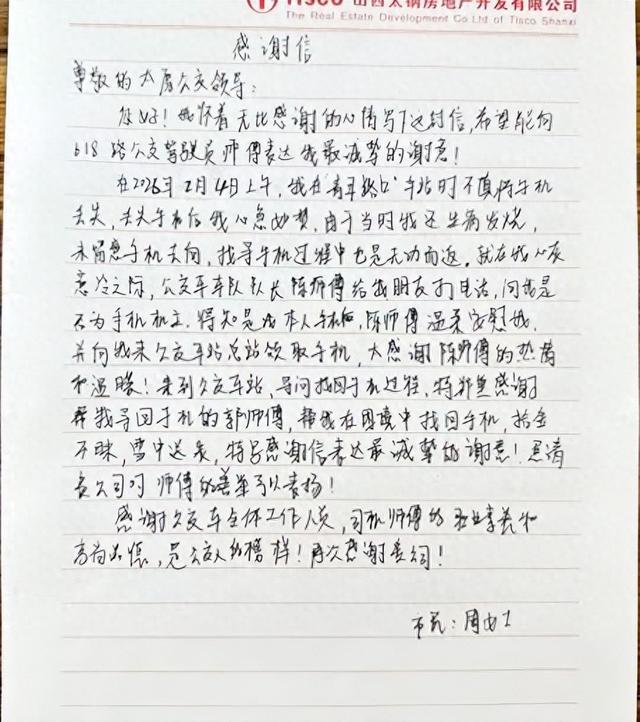 TISCO 山西太钢房地产开发有限公司
The Real Estate Development Co Ltd of Tisco Shanxi
感谢信
尊敬的太原公交领导：
您好！我怀着无比感谢的心情写下这封信，希望能向
618路公交驾驶员师傅表达我最诚挚的谢意！
在2026年2月4日上午，我在青年路口车站时不慎将手机
丢失，丢失手机后我心急如焚，由于当时我还生病发烧，
未留意手机去向，找寻手机过程中也是无功而返。就在我心灰
意冷之际，公交车车队队长陈师傅给我朋友打电话，问我是
否为手机机主，得知是我本人手机后，陈师傅温柔安慰我，
并向我来公交车站总站领取手机，太感谢陈师傅的热菌
和温暖！来到公交车站，寻问找回手机过程，特别感谢
帮我寻回手机的郭师傅，帮我在困境中找回手机，拾金
不昧，雪中送炭，特写感谢信表达最诚挚的谢意！恳请
贵公司对师傅的善举予以表扬！
感谢公交车全体工作人员，司机师傅的职业素养和
高尚品德，是公交人的榜样！再次感谢贵公司！
市民：周女士